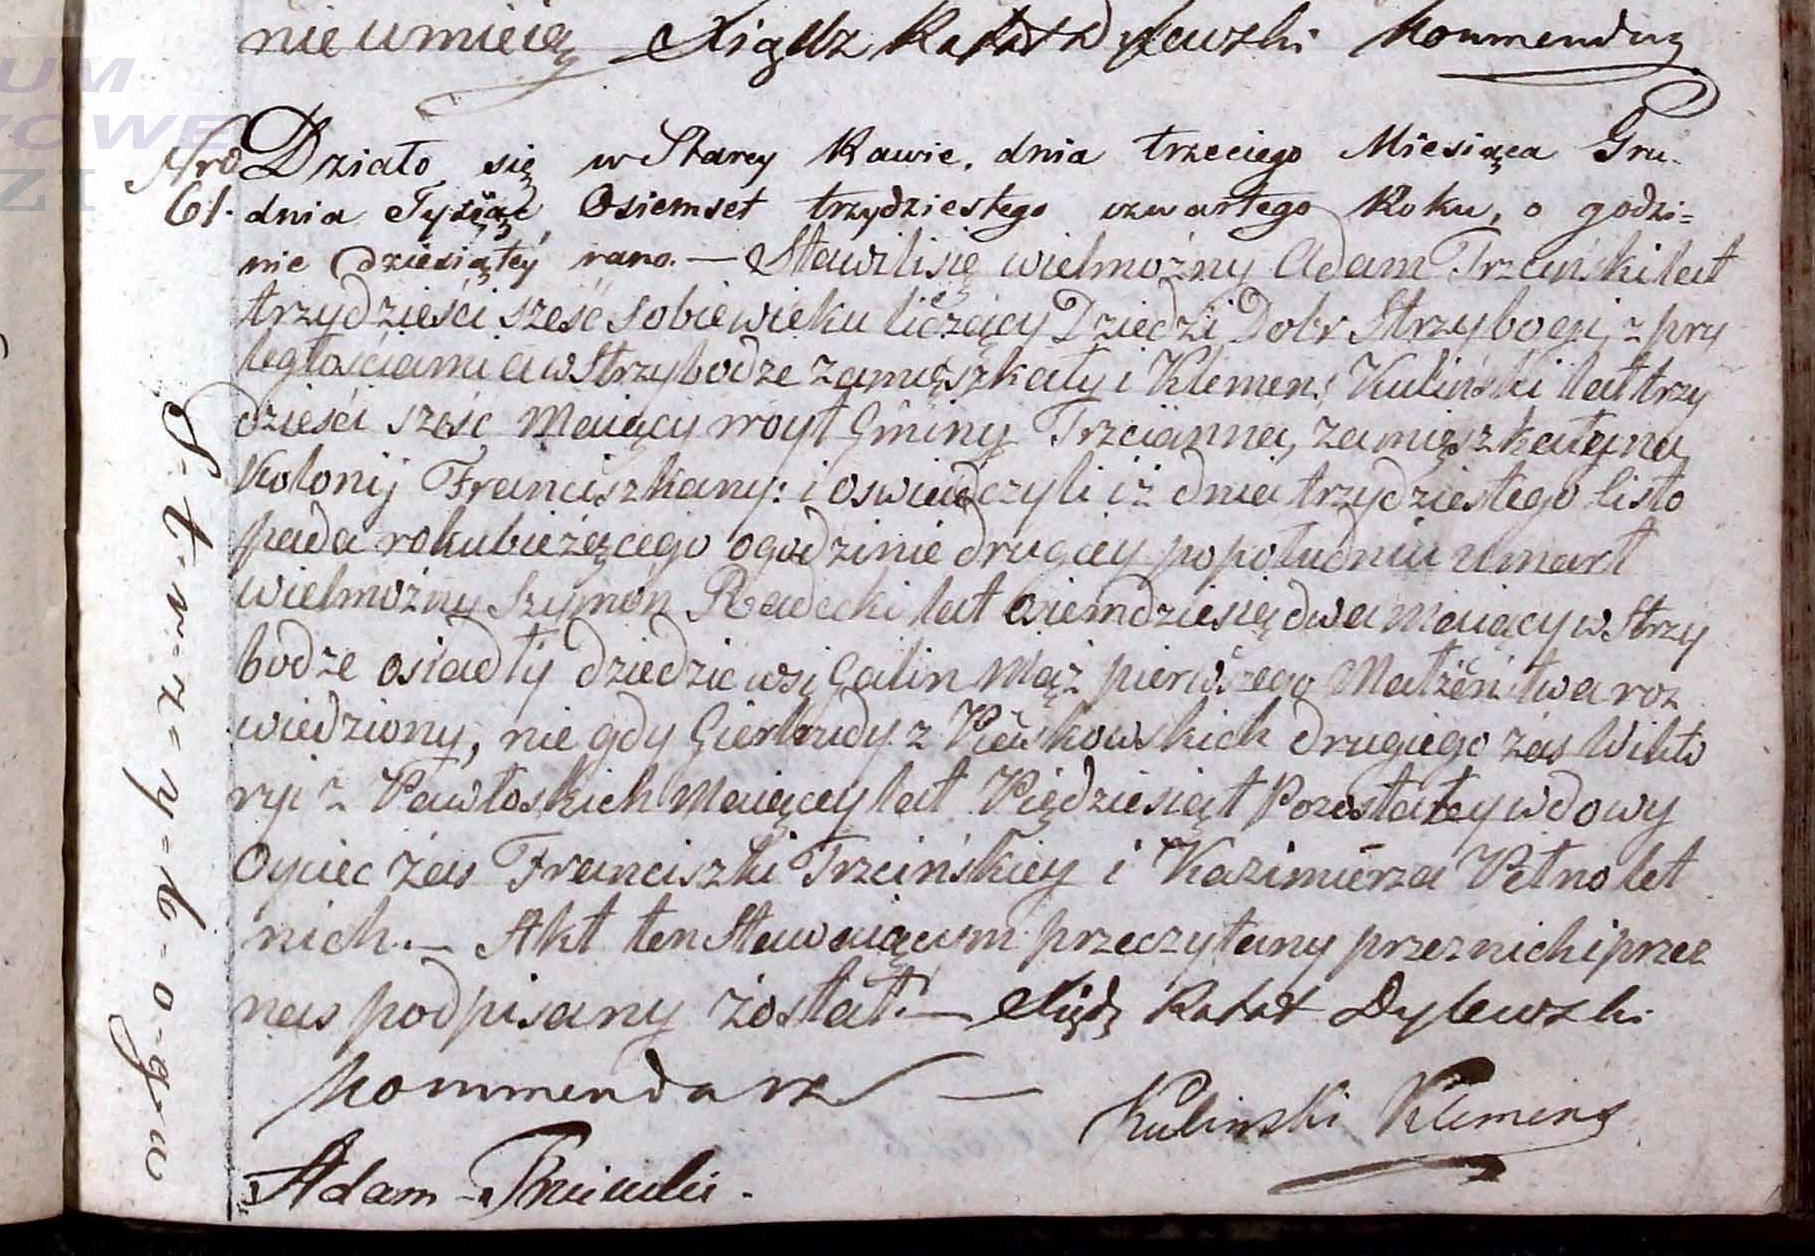 nieumieią Xiądz Rafał Dylewski Kommendarz
Nro Działo się w Starey Rawie, dnia trzeciego Miesiąca Gru-
61. dnia Tysiąc Osiemset trzydziestego czwartego Roku, o godzi=
nie dziesiątey rano. — Stawili się wielmożny Adam Trzciński lat
trzydzieści sześć sobie wieku liczący Dziedzic Dobr Strzybogi, z przy
ległościami a w Strzybodze zamięszkały i Klemens Kuliński lat trzy
dzieści sześc Maiący woyt Gminy Trzcianna, zamięszkały na
Kolonij Franciszkany: i oswiadczyli iż dnia trzydziestego Listo
pada roku bieżęcego o godzinie drugiey po południu umarł
wielmożny Szymon Radecki lat osiemdziesiąt dwa Maiący w Strzy
bodze osiadły dziedzic wsi Galin Mąż pierwszego Małżeństwa roz
wiedziony, nie gdy Giertrudy z Pieńkowskich drugiego zaś Wikto
ryi z Pawłoskich Maiącey lat Pięćdziesiąt Pozostałey wdowy
Oyciec żas Franciszki Trzcińskiey i Kazimierza Pełnolet
nich. — Akt ten Stawaiącym przeczytany przez nich i przez
nas podpisany został. — Xiądz Rafał Dylewski
Kommendarz —
Kulinski Klemens
Adam Trzcinski.
S-t-r-z-y-b-o-g-a